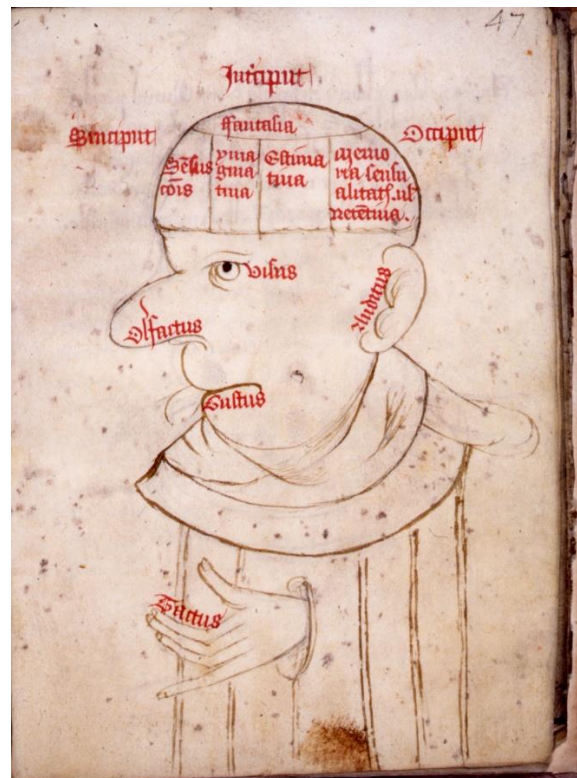 47
Intciput
Sinciput
Occiput
ffantasia
Sēsus
cōis
yma
gina
tiua
Estima
tiua
Memo
ria sensu
alitatꝭ. ul
retētiua.
Visus
Auditus
Olfactus
Gustus
Tactus